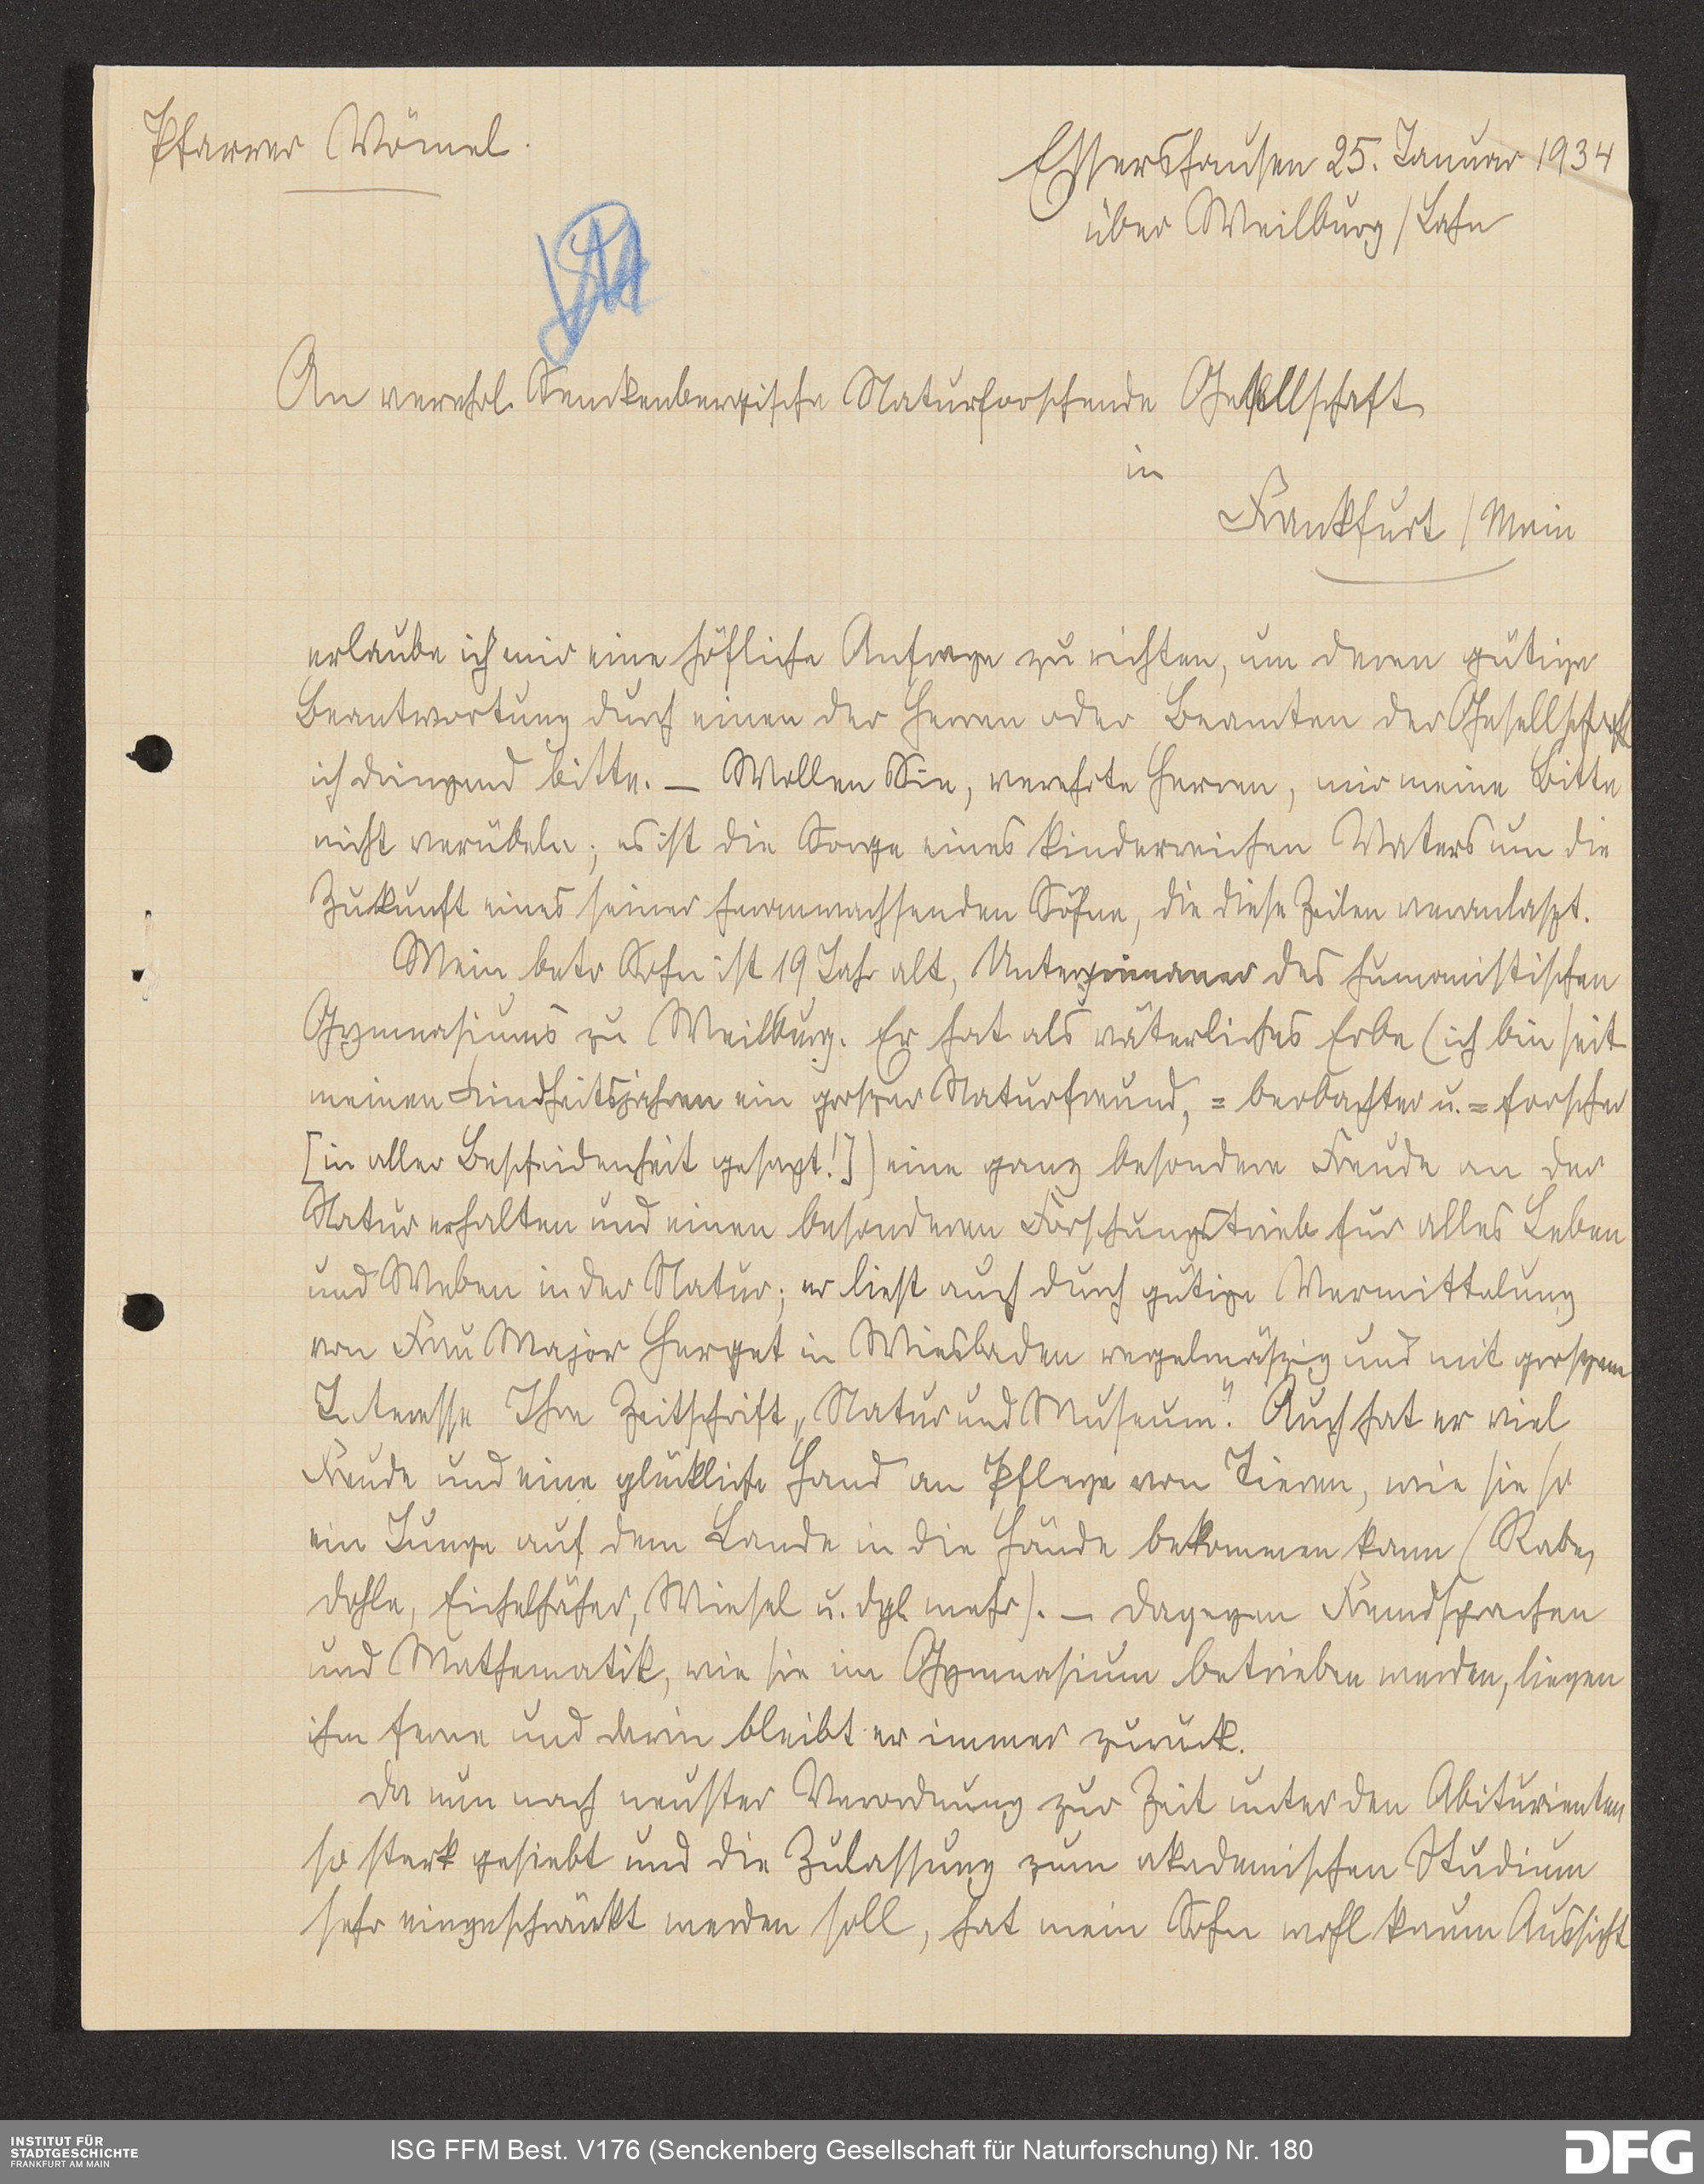 Pfarrer Vömel.
Essershausen 25. Januar 1934
über Weilburg / Lahn
An verehrl. Senckenbergische Naturforschende Gesellschaft
in
Frankfurt / Main
erlaube ich mir eine höfliche Anfrage zu richten, um deren gütige
Beantwortung durch einen der Herren oder Beamten der Gesellschaft
ich dringend bitte. — Wollen Sie, verehrte Herren, mir meine Bitte
nicht verübeln; es ist die Sorge eines kinderreichen Vaters um die
Zukunft eines seiner heranwachsenden Söhne, die diese Zeilen veranlaszt.
Mein betr Sohn ist 19 Jahr alt, Unterprimaner des humanistischen
Gymnasiums zu Weilburg. Er hat als väterliches Erbe (ich bin seit
meinen Kindheitsjahren ein groszer Naturfreund, =beobachter u. =forscher
[in aller Bescheidenheit gesagt!]) eine ganz besondere Freude an der
Natur erhalten und einen besonderen Forschungstrieb für alles Leben
und Weben in der Natur; er liest auch durch gütige Vermittelung
von Frau Major Herget in Wiesbaden regelmäszig und mit groszem
Interesse Ihre Zeitschrift „Natur und Museum". Auch hat er viel
Freude und eine glückliche Hand an Pflege von Tieren, wie sie so
ein Junge auf dem Lande in die Hände bekommen kann (Rabe,
Dohle, Eichelhäher, Wiesel u. dgl. mehr). — Dagegen Fremdsprachen
und Mathematik, wie sie im Gymnasium betrieben werden, liegen
ihm ferne und darin bleibt er immer zurück.
Da nun nach neuster Verordnung zur Zeit unter den Abiturienten
so stark gesiebt und die Zulassung zum akademischen Studium
sehr eingeschränkt werden soll, hat mein Sohn wohl kaum Aussicht
INSTITUT FÜR
STADTGESCHICHTE
FRANKFURT AM MAIN
ISG FFM Best. V176 (Senckenberg Gesellschaft für Naturforschung) Nr. 180
DFG